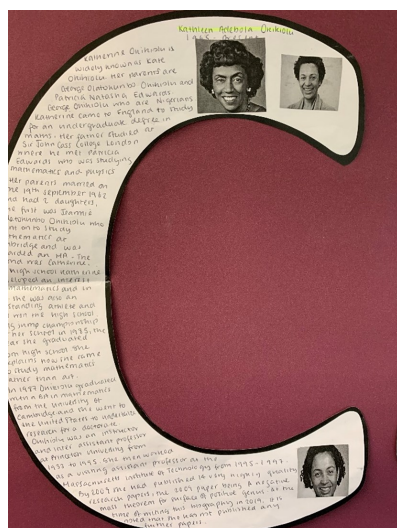 Kathleen Adebola Okikiolu
1965 -
Katherine Okikiolu is
widely known as Kate
Okikiolu. Her parents are
George Olatokunbo Okikiolu and
Patricia Natasha Edwards.
George Okikiolu who are Nigerians
Katherine came to England to study
for an undergraduate degree in
maths. Her father studied at
Sir John Cass College London
where he met Patricia
Edwards who was studying
mathematics and physics
her parents married on
the 19th September 1962
nd had 2 daughters,
he first was
Okikiolu who
nt on to study
thematics at
bridge and was
arded an MA. The
nd was Catherine.
high school Katherine
eloped an interest
mathematics and in
she was also an
tanding athlete and
won the high school
jump championship
her school in 1985, the
ar she graduated
om high school she
xplains how she came
o study mathematics
ather than art.
In 1987 Okikiolu graduated
with a BA in mathematics
from the University of
Cambridge and she went to
the United States to undertake
research for a doctorate
Okikiolu was an instructor
and later assistant professor
at Princeton University from
1993 to 1995. She then worked
as a visiting assistant professor at the
Massachusetts Institute of Technology from 1995-1997.
By 2009 she had published 16 very highly quality
research papers, the 2009 paper being A negative
mass theorem for surface of positive genus. At the
time of writing this biography in 2011, it is
noted that she has not published any
further papers.